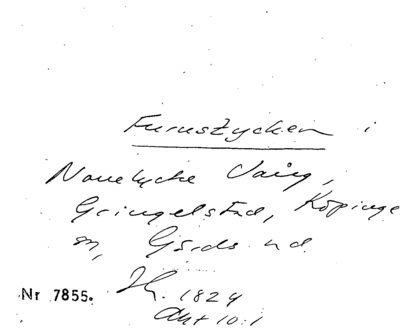 Furustycken i
Nouelycke Vång,
Gringelstad, Köpinge
sn, Gärds hd
Nr 7855.
Th. 1824
Akt 10:1